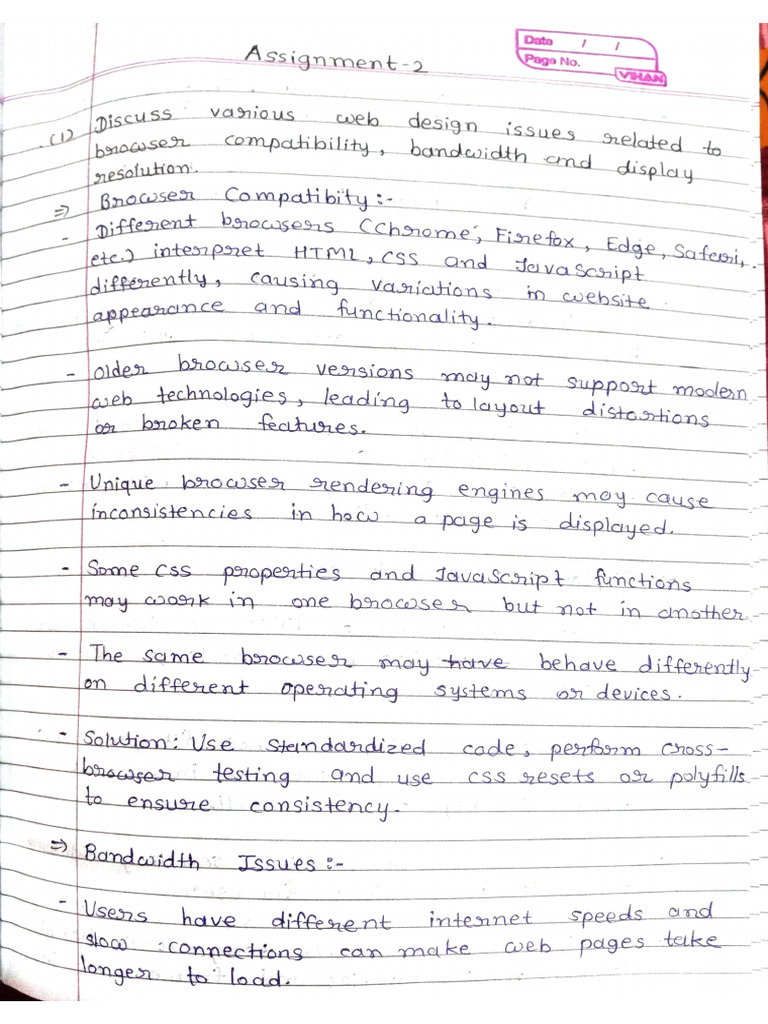 Assignment-2
Date / /
Page No.
VIHAN
(1) Discuss various web design issues related to
browser compatibility, bandwidth and display
resolution.
⇒ Browser Compatibity :-
- Different browsers (Chrome, Firefox, Edge, Safari,
etc.) interpret HTML, CSS and JavaScript
differently, causing variations in website
appearance and functionality.
- Older browser versions may not support modern
web technologies, leading to layout distortions
or broken features.
- Unique browser rendering engines may cause
inconsistencies in how a page is displayed.
- Some CSS properties and JavaScript functions
may work in one browser but not in another
- The same browser may have behave differently
on different operating systems or devices.
- Solution: Use standardized code, perform cross-
browser testing and use CSS resets or polyfills
to ensure consistency.
⇒ Bandwidth Issues :-
- Users have different internet speeds and
slow connections can make web pages take
longer to load.